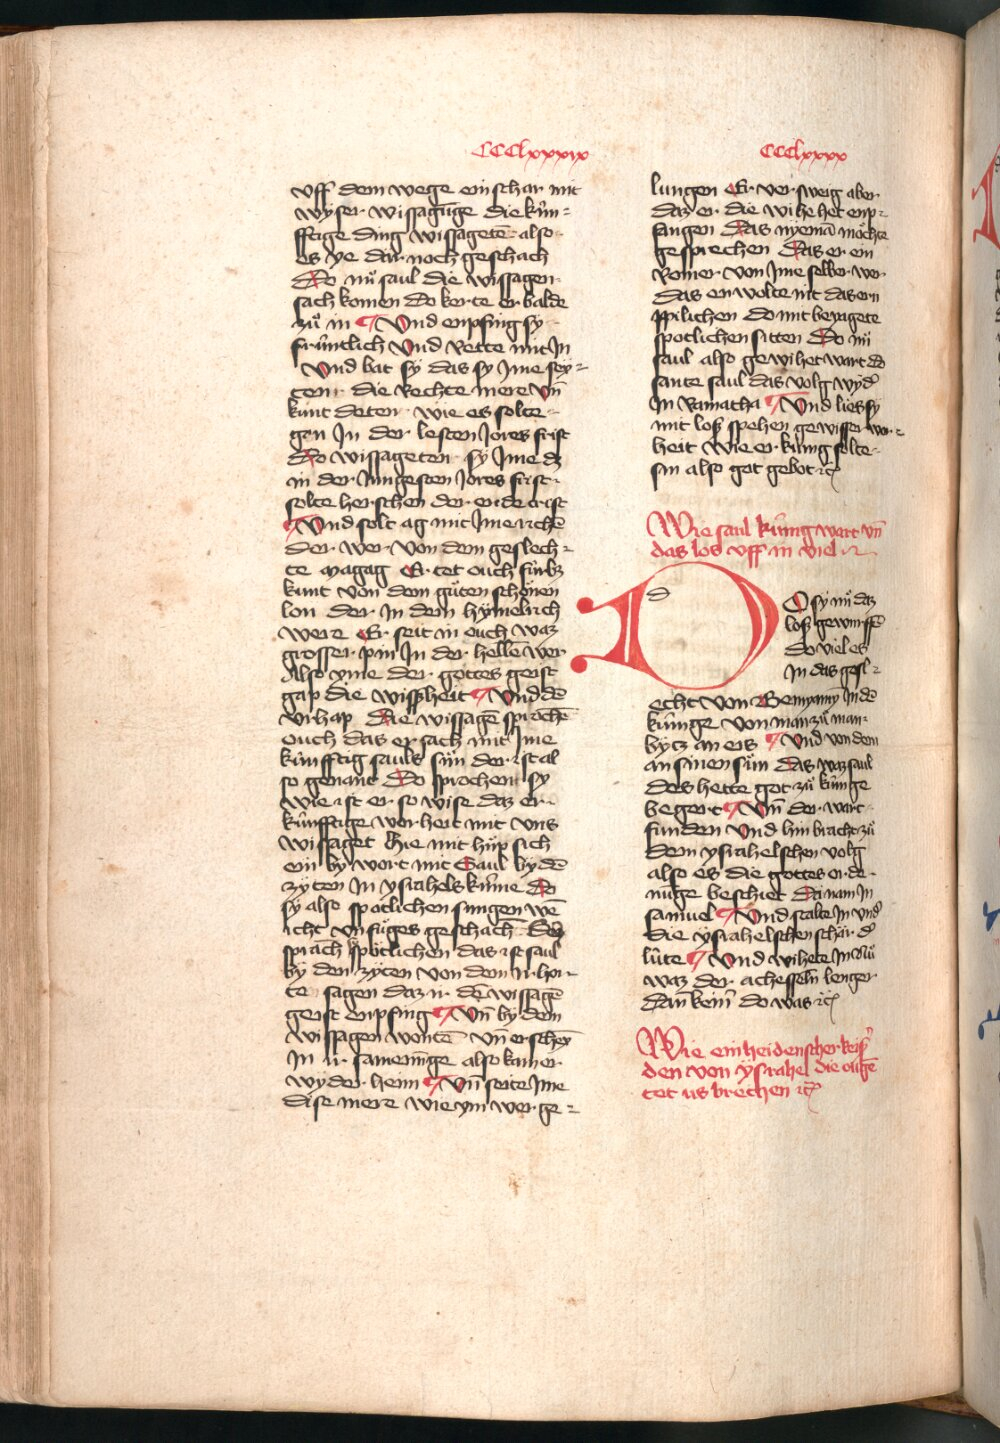 CCClxxxix
vff dem wege ein schar mit
wyser wissagūge die kún⸗
fftige ding wissagetē also
es ye dar noch geschach
Do nuͦ saul die wissagen
sach komen do kerte er balde
zuͦ in Vnd enpfing sy
fruͤntlich Vnd Rette mit In
Vnd bat sy das sy Ime sey⸗
tent die Rechte mere Vn̄
kunt deten wie es solte
gen In der lesten Jores frist
Do wissageten sy Ime dz
in der Jungesten Jores frist
solte herschen der endecrist
Vnd solt ag mit Ime richē
der wer von dem geslech⸗
te magag Er tet ouch fúrbz
kunt von dem guͤten schoͤnen
lon der In dem hymelrich
were Er seit in ouch waz
grosser pin In der hellē wer
Also yme der gottes geist
gap die wissheit Vnd dē
vrhap Die wissagē sprochē
ouch das er sach mit Ime
kúnfftig sauls suͤn der ist al
so genant Do sprochent sy
wie ist er so wise daz er
kúnfftige worheit mit vns
wissaget Hie mit huͦp sich
ein by wort mit Saul by dē
zyten In ysrahels kúnne Do
sy also spotlichen sungen wē
icht vnfuͤges geschach Der
sprach spoͤtlichen das ist saul
by den zyten von dem Ir hor
te sagen daz ir dē wissagē
geist enpfing Vn̄ by dem
wissagen wontē vn̄ erschey
In ir sameninge also kam er
wyder heim Vn̄ seite Ime
dise mere wie ym wer ge⸗
CCClxxxx
lungen Er versweig aber
daz er die wihe het enp⸗
fangen Das nyemā moͤchte
gesprechen Das er ein
Romer von Ime selber wer
das er wolte mit das ern
spilichen do mit beyagete
spotlichen sitten Do nuͦ
saul also gewihet wart do
sante saul das volg wydˀ
In Ramatha Vnd lies sy
mit losz spehen gewisser wor⸗
heit wie er kúng solte
sin also got gebot ⁊c
Wie saul kúnig wart vn̄
das los vff in viel ⁊c
DO sy nuͦ daz
losz gewurffē
do viel es
In das gesl⸗
echt von Benyamyn In dē
kúnge von man zuͦ man
bytz an eis Vnd von dem
an sinen suͦn das waz saul
des hette got zuͦ kúnge
begert Vn̄ der wart
funden vnd hin bracht zuͦ
dem ysrahelschen volg
also es die gottes orde⸗
nūge beschiet Do nam In
samuel Vnd stalte In vndˀ
die ysrahelschen schar dˀ
lúte Vnd wihete In Nuͦ
waz der achesseln lenger
dan̄ kein̄ do was ⁊c
Wie ein heidenscher keisˀ
den von ysrahel die ougē
tet us brechen ⁊c